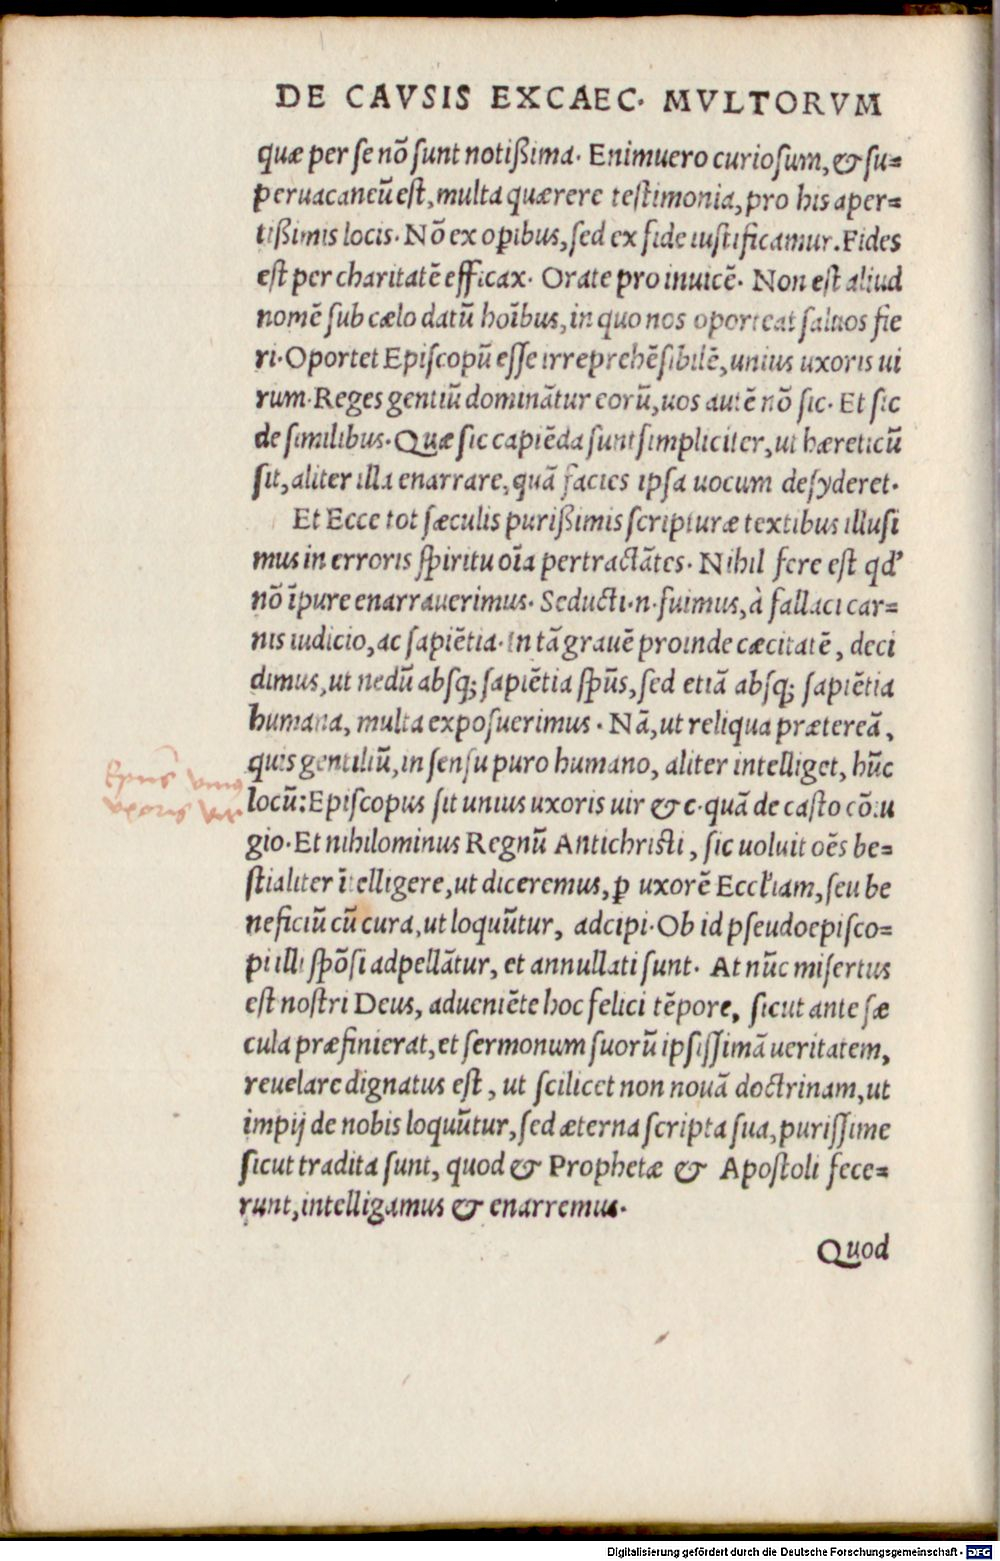 DE CAVSIS EXCAEC· MVLTORVM
quæ per se nō sunt notißima· Enimuero curiosum, & su=
peruacaneū est, multa quærere testimonia, pro his aper=
tißimis locis· Nō ex opibus, sed ex fide iustificamur. Fides
est per charitatē efficax· Orate pro inuicē· Non est aliud
nomē sub cælo datū hoībus, in quo nos oporteat saluos fie
ri· Oportet Episcopū esse irreprehēsibilē, unius uxoris ui
rum· Reges gentiū domināntur eorū, uos autē nō sic· Et sic
de similibus· Quæ sic capiēda sunt simpliciter, ut hæreticū
sit, aliter illa enarrare, quā facies ipsa uocum desyderet·
Et Ecce tot sæculis purißimis scripturæ textibus illusi
mus in erroris spiritu oīa pertractātes· Nihil fere est qd'
nō īpure enarrauerimus· Seducti·n·fuimus, à fallaci car=
nis iudicio, ac sapiētia· In tā grauē proinde cæcitatē, deci
dimus, ut nedū absq; sapiētia spūs, sed etiā absq; sapiētia
humana, multa exposuerimus· Nā, ut reliqua prætereā,
quis gentiliū, in sensu puro humano, aliter intelliget, hūc
locū: Episcopus sit unius uxoris uir & c· quā de casto cōiu
gio· Et nihilominus Regnū Antichristi, sic uoluit oēs be=
stialiter ītelligere, ut diceremus, p uxorē Eccłiam, seu be
neficiū cū cura, ut loquūtur, adcipi· Ob id pseudoepisco=
pi illi spōsi adpellātur, et annullati sunt· At nūc misertus
est nostri Deus, adueniēte hoc felici tēpore, sicut ante sæ
cula præfinierat, et sermonum suorū ipsissimā ueritatem,
reuelare dignatus est, ut scilicet non nouā doctrinam, ut
impij de nobis loquūtur, sed æterna scripta sua, purissime
sicut tradita sunt, quod & Prophetæ & Apostoli fece=
runt, intelligamus & enarremus·
Quod
Epūs vnius
vxoris vir
Digitalisierung gefördert durch die Deutsche Forschungsgemeinschaft - DFG